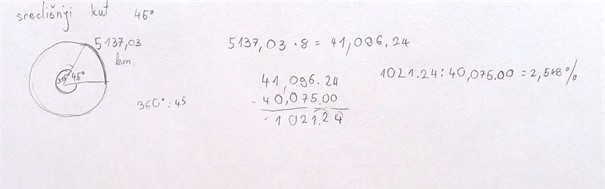 središnji kut 45°
5137,03
km
315° 45°
360° : 45
5137,03 · 8 = 41,096.24
41,096.24
- 40,075.00
1021.24
1021.24 : 40,075.00 = 2,548%